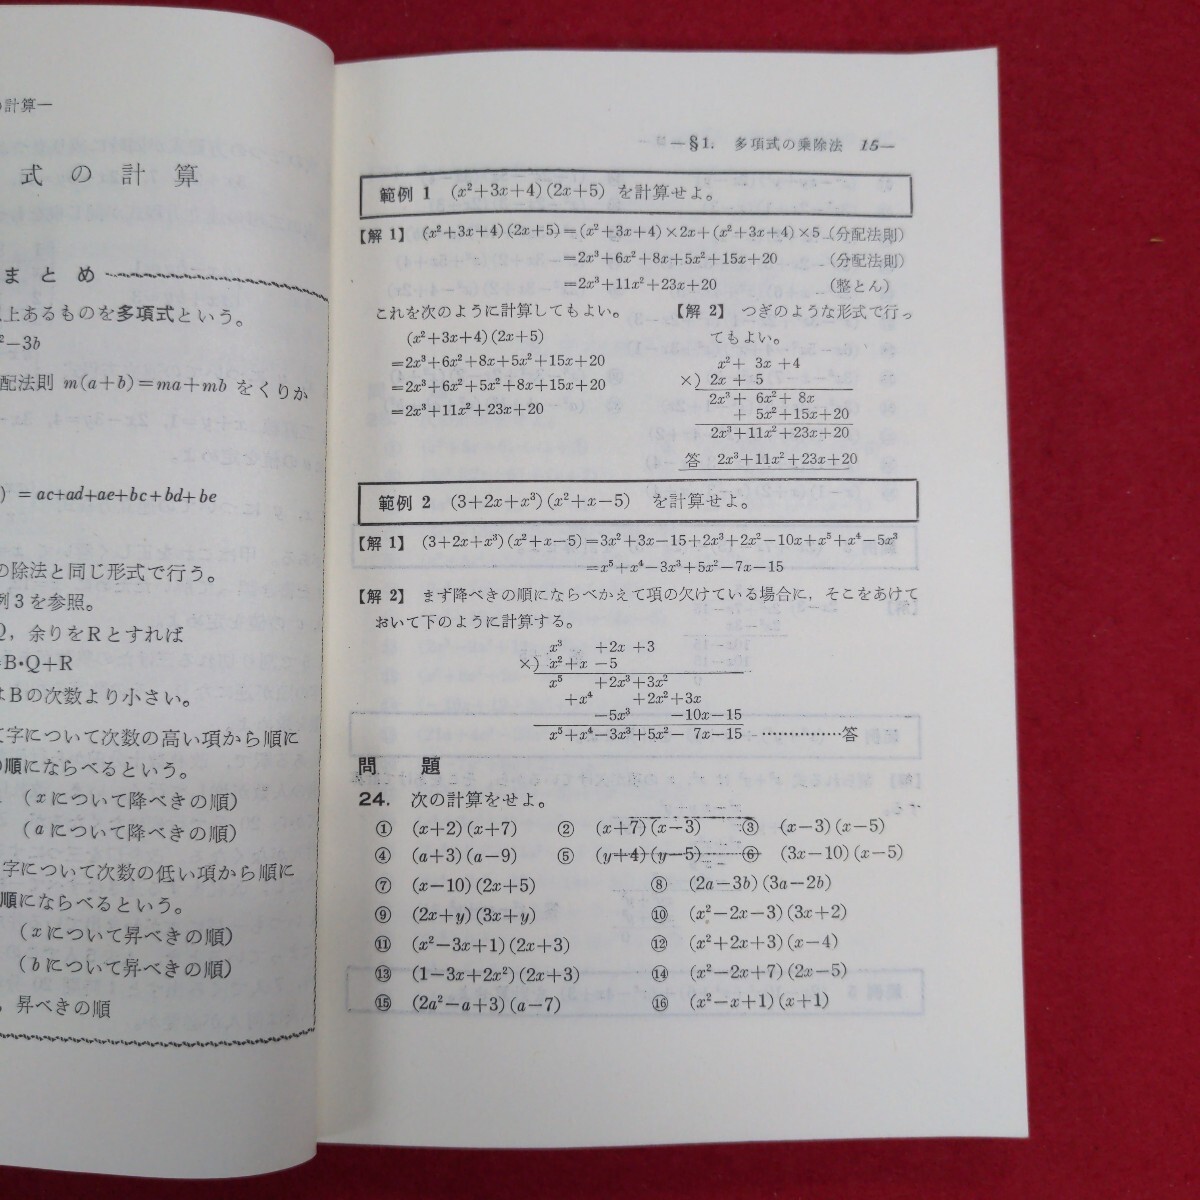 の計算—
式の計算
まとめ
上あるものを多項式という。
²−3b
配法則 m(a+b)=ma+mb をくりか
) =ac+ad+ae+bc+bd+be
の除法と同じ形式で行う。
例3を参照。
Q，余りをRとすれば
=B・Q+R
はBの次数より小さい。
文字について次数の高い項から順に
の順にならべるという。
(xについて降べきの順)
(aについて降べきの順)
字について次数の低い項から順に
順にならべるという。
(xについて昇べきの順)
(bについて昇べきの順)
，昇べきの順
—§1. 多項式の乗除法 15—
範例 1 (x²+3x+4)(2x+5) を計算せよ。
【解 1】 (x²+3x+4)(2x+5)=(x²+3x+4)×2x+(x²+3x+4)×5 (分配法則)
=2x³+6x²+8x+5x²+15x+20 (分配法則)
=2x³+11x²+23x+20 (整とん)
これを次のように計算してもよい。
(x²+3x+4)(2x+5)
=2x³+6x²+8x+5x²+15x+20
=2x³+6x²+5x²+8x+15x+20
=2x³+11x²+23x+20
【解 2】 つぎのような形式で行っ
てもよい。
x²+ 3x +4
×) 2x + 5
2x³+ 6x²+ 8x
+ 5x²+15x+20
2x³+11x²+23x+20
答 2x³+11x²+23x+20
範例 2 (3+2x+x³)(x²+x−5) を計算せよ。
【解 1】 (3+2x+x³)(x²+x−5)=3x²+3x−15+2x³+2x²−10x+x⁵+x⁴−5x³
=x⁵+x⁴−3x³+5x²−7x−15
【解 2】 まず降べきの順にならべかえて項の欠けている場合に，そこをあけて
おいて下のように計算する。
x³ +2x +3
×) x²+x −5
x⁵ +2x³+3x²
+x⁴ +2x²+3x
−5x³ −10x−15
x⁵+x⁴−3x³+5x²− 7x−15 ··············答
問 題
24. 次の計算をせよ。
① (x+2)(x+7) ② (x+7)(x−3) ③ (x−3)(x−5)
④ (a+3)(a−9) ⑤ (y+4)(y−5) ⑥ (3x−10)(x−5)
⑦ (x−10)(2x+5) ⑧ (2a−3b)(3a−2b)
⑨ (2x+y)(3x+y) ⑩ (x²−2x−3)(3x+2)
⑪ (x²−3x+1)(2x+3) ⑫ (x²+2x+3)(x−4)
⑬ (1−3x+2x²)(2x+3) ⑭ (x²−2x+7)(2x−5)
⑮ (2a²−a+3)(a−7) ⑯ (x²−x+1)(x+1)